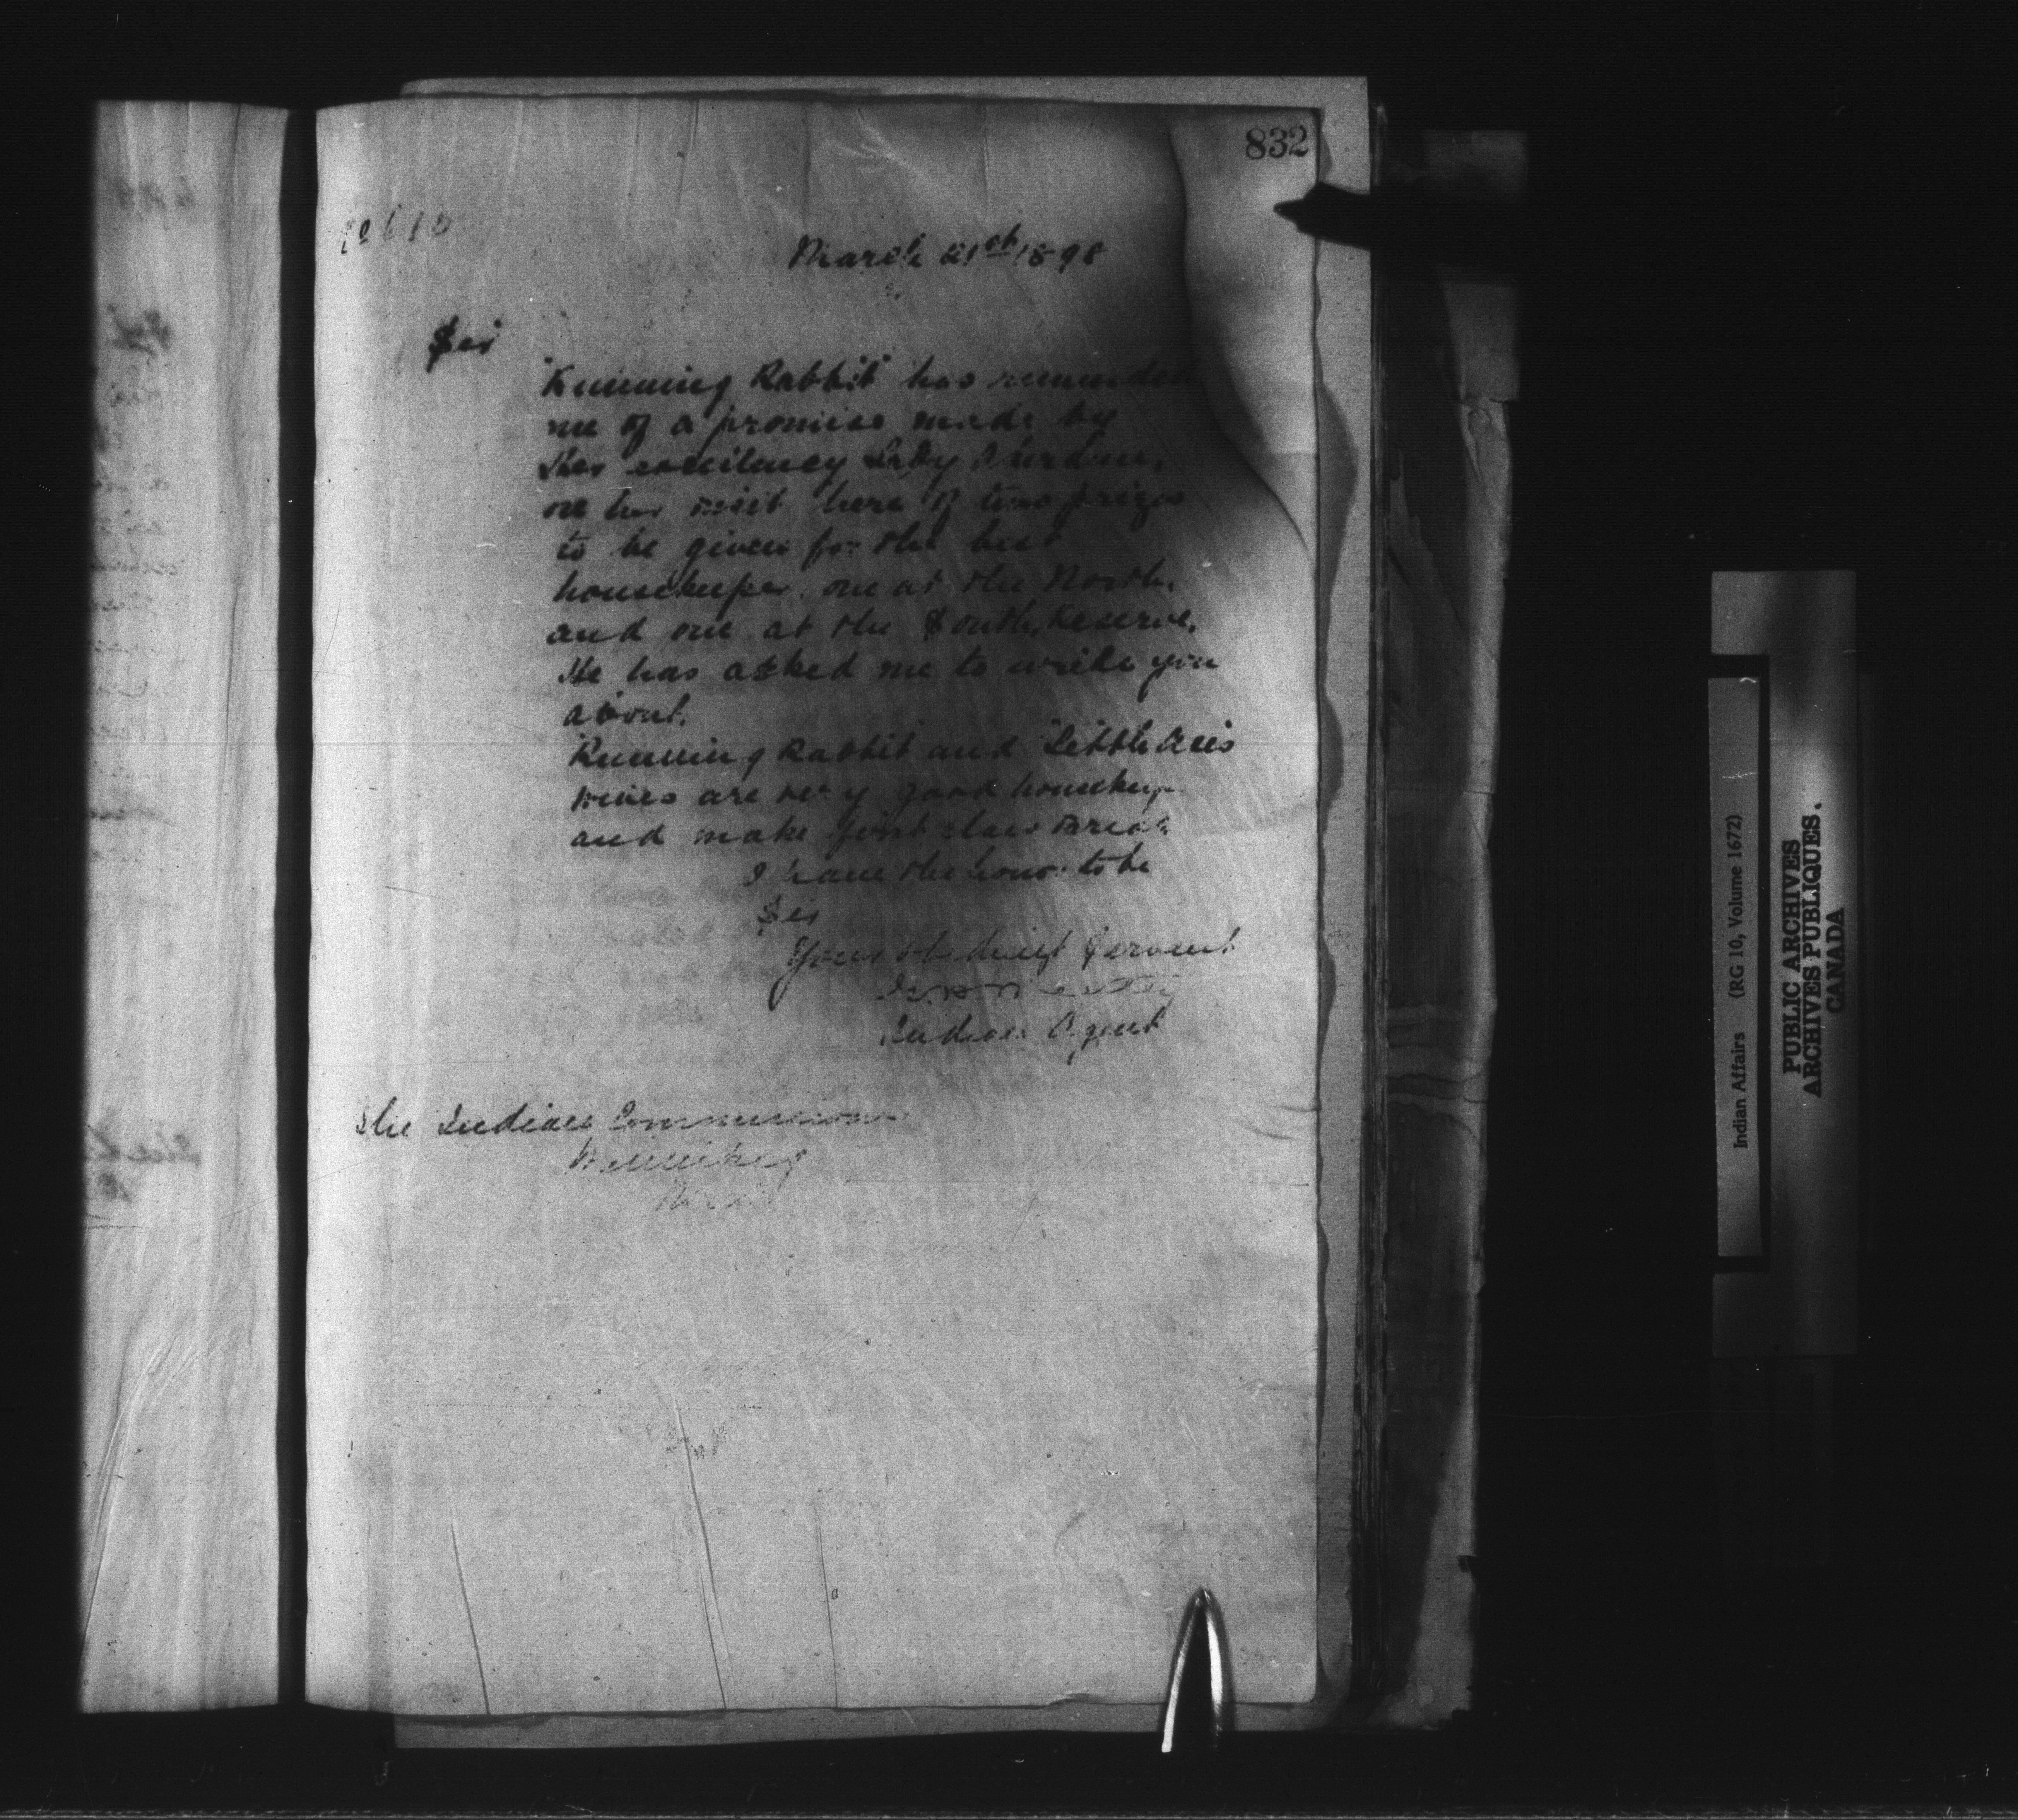 832
March 21st 1898
Sir
"Running Rabbit" has reminded
me of a promise made by
Her excellency Lady
on her visit here of two prizes
to be given for the best
housekeeper, one at the North,
and one at the South, Reserve,
He has asked me to write you
about.
Running Rabbit and Little Axe's
wives are very good housekeep
and make first class Bread
I have the honor to be
Sir
Your obedient Servant
Indian Agent
The Indian Commissioner
Winnipeg
Indian Affairs (RG 10, Volume 1672)
PUBLIC ARCHIVES
ARCHIVES PUBLIQUES.
CANADA